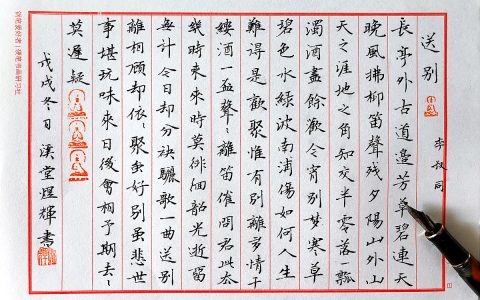 送別
李叔同
長亭外古道邊芳草碧連天
晚風拂柳笛聲殘夕陽山外山
天之涯地之角知交半零落一瓢
濁酒盡餘歡今宵別夢寒草
碧色水綠波南浦傷如何人生
難得是歡聚惟有別離多情千
縷酒一盃聲〻離笛催問君此去
幾時來來時莫徘徊韶光逝留
無計今日却分袂驪歌一曲送別
離相顧却依〻聚雖好別雖悲世
事堪玩味來日後會相予期去〻
莫遲疑
戊戌冬日溪堂煜輝書